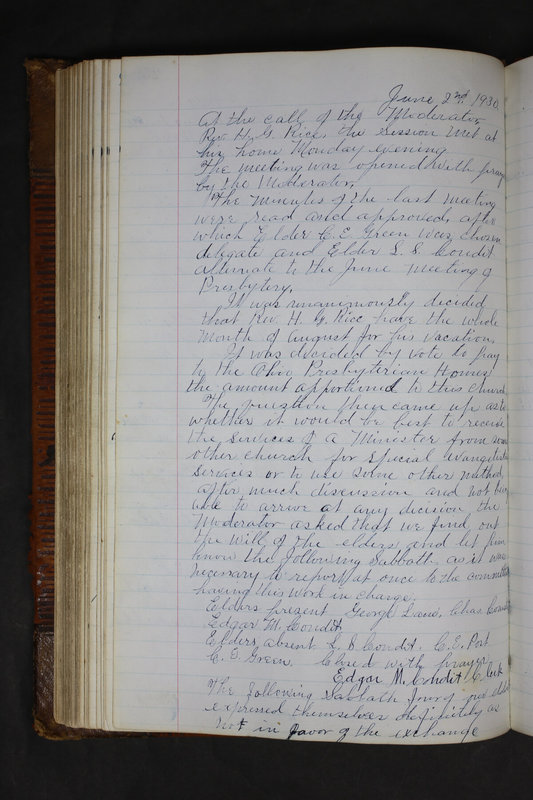 June 2nd, 1930.
At the call of the Moderator
Rev. H. G. Rice, the Session met at
his home Monday evening.
The meeting was opened with pray
by the Moderator.
The Minutes of the last meeting
were read and approved, after
which Elder C. E. Green was chosen
delegate and Elder L. S. Condit
alternate to the June meeting of
Presbytery.
It was unanimously decided
that Rev. H. G. Rice have the whole
Month of August for his vacation.
It was decided by vote to pay
to the Ohio Presbyterian Homes
the amount apportioned to this church.
The question then came up as to
whether it would be best to receive
the services of a Minister from some
other church for special evangelistic
services or to use some other method,
after much discussion and not being
able to arrive at any decision the
Moderator asked that we find out
the will of the elders and let him
know the following Sabbath, as it was
necessary to report at once to the committee
having this work in charge.
Elders present George Chas. Condit
Edgar M. Condit
Elders absent L. S. Condit, C. E.
C. E. Green. Closed with prayer.
Edgar M. Condit, Clerk
The following Sabbath
expressed themselves definitely as
not in favor of the exchange